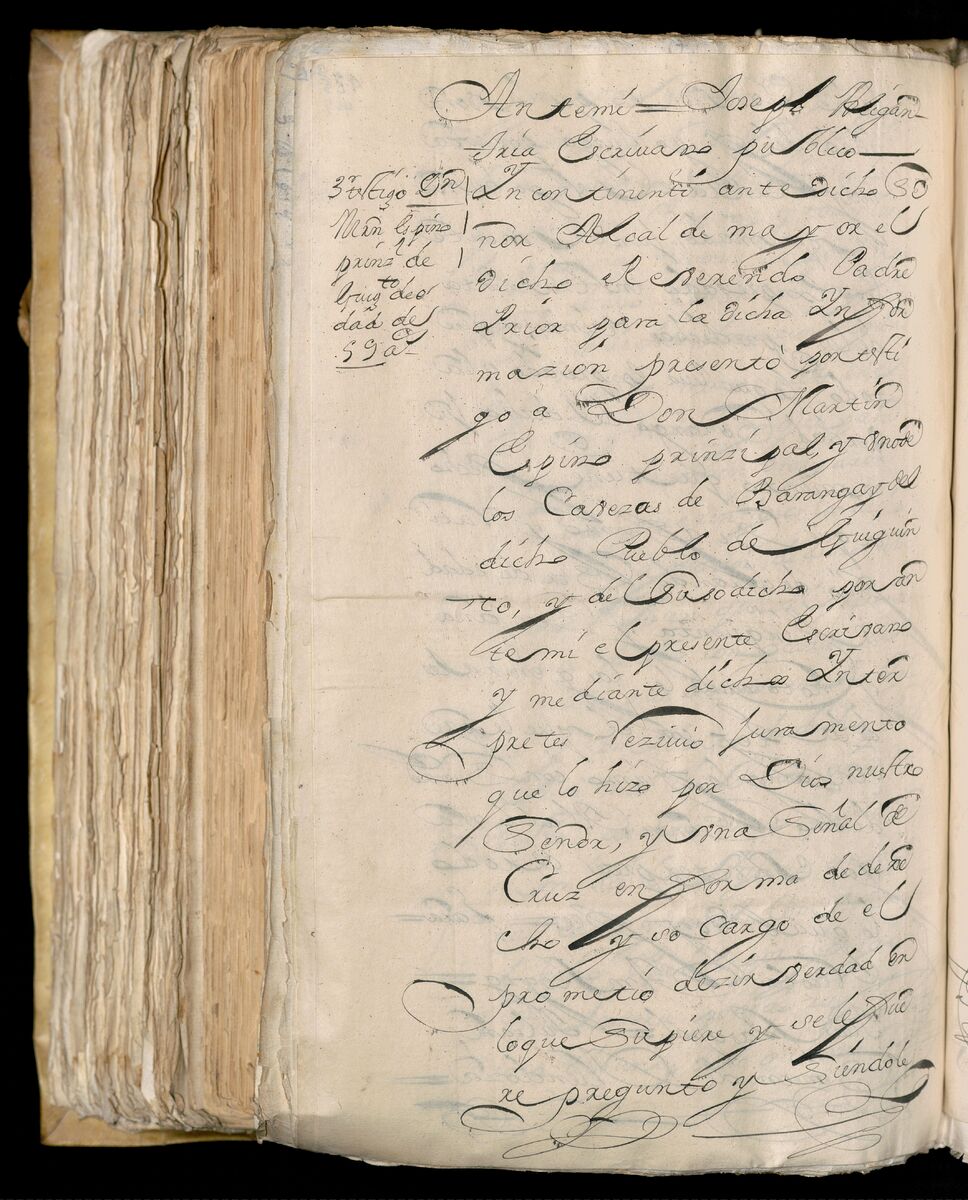 Antemi = Joseph Melgan-
dria Escrivano publico
3r testigo Dn
Mrn Espino
prinzl de
Guigto de e
dad de
59 as
Yncontinenti ante dicho Se
ñor Alcalde mayor el
dicho Reverendo Padre
Prior para la dicha Ynfor
mazion presentò por testi
go a Don Martin
Espino prinzipal, y vno de
los Cavezas de Barangay del
dicho Pueblo de Guiguin
to, y del Susodicho por an
te mi el presente Escrivano
y mediante dichos Ynter
pretes Rezivio Juramento
que lo hizo por Dios nuestro
Señor, y vna Señal de
Cruz en forma de dere
cho y so cargo de el
prometio dezir verdad en
loque Supiere y se le fue
re pregunto y Siendole